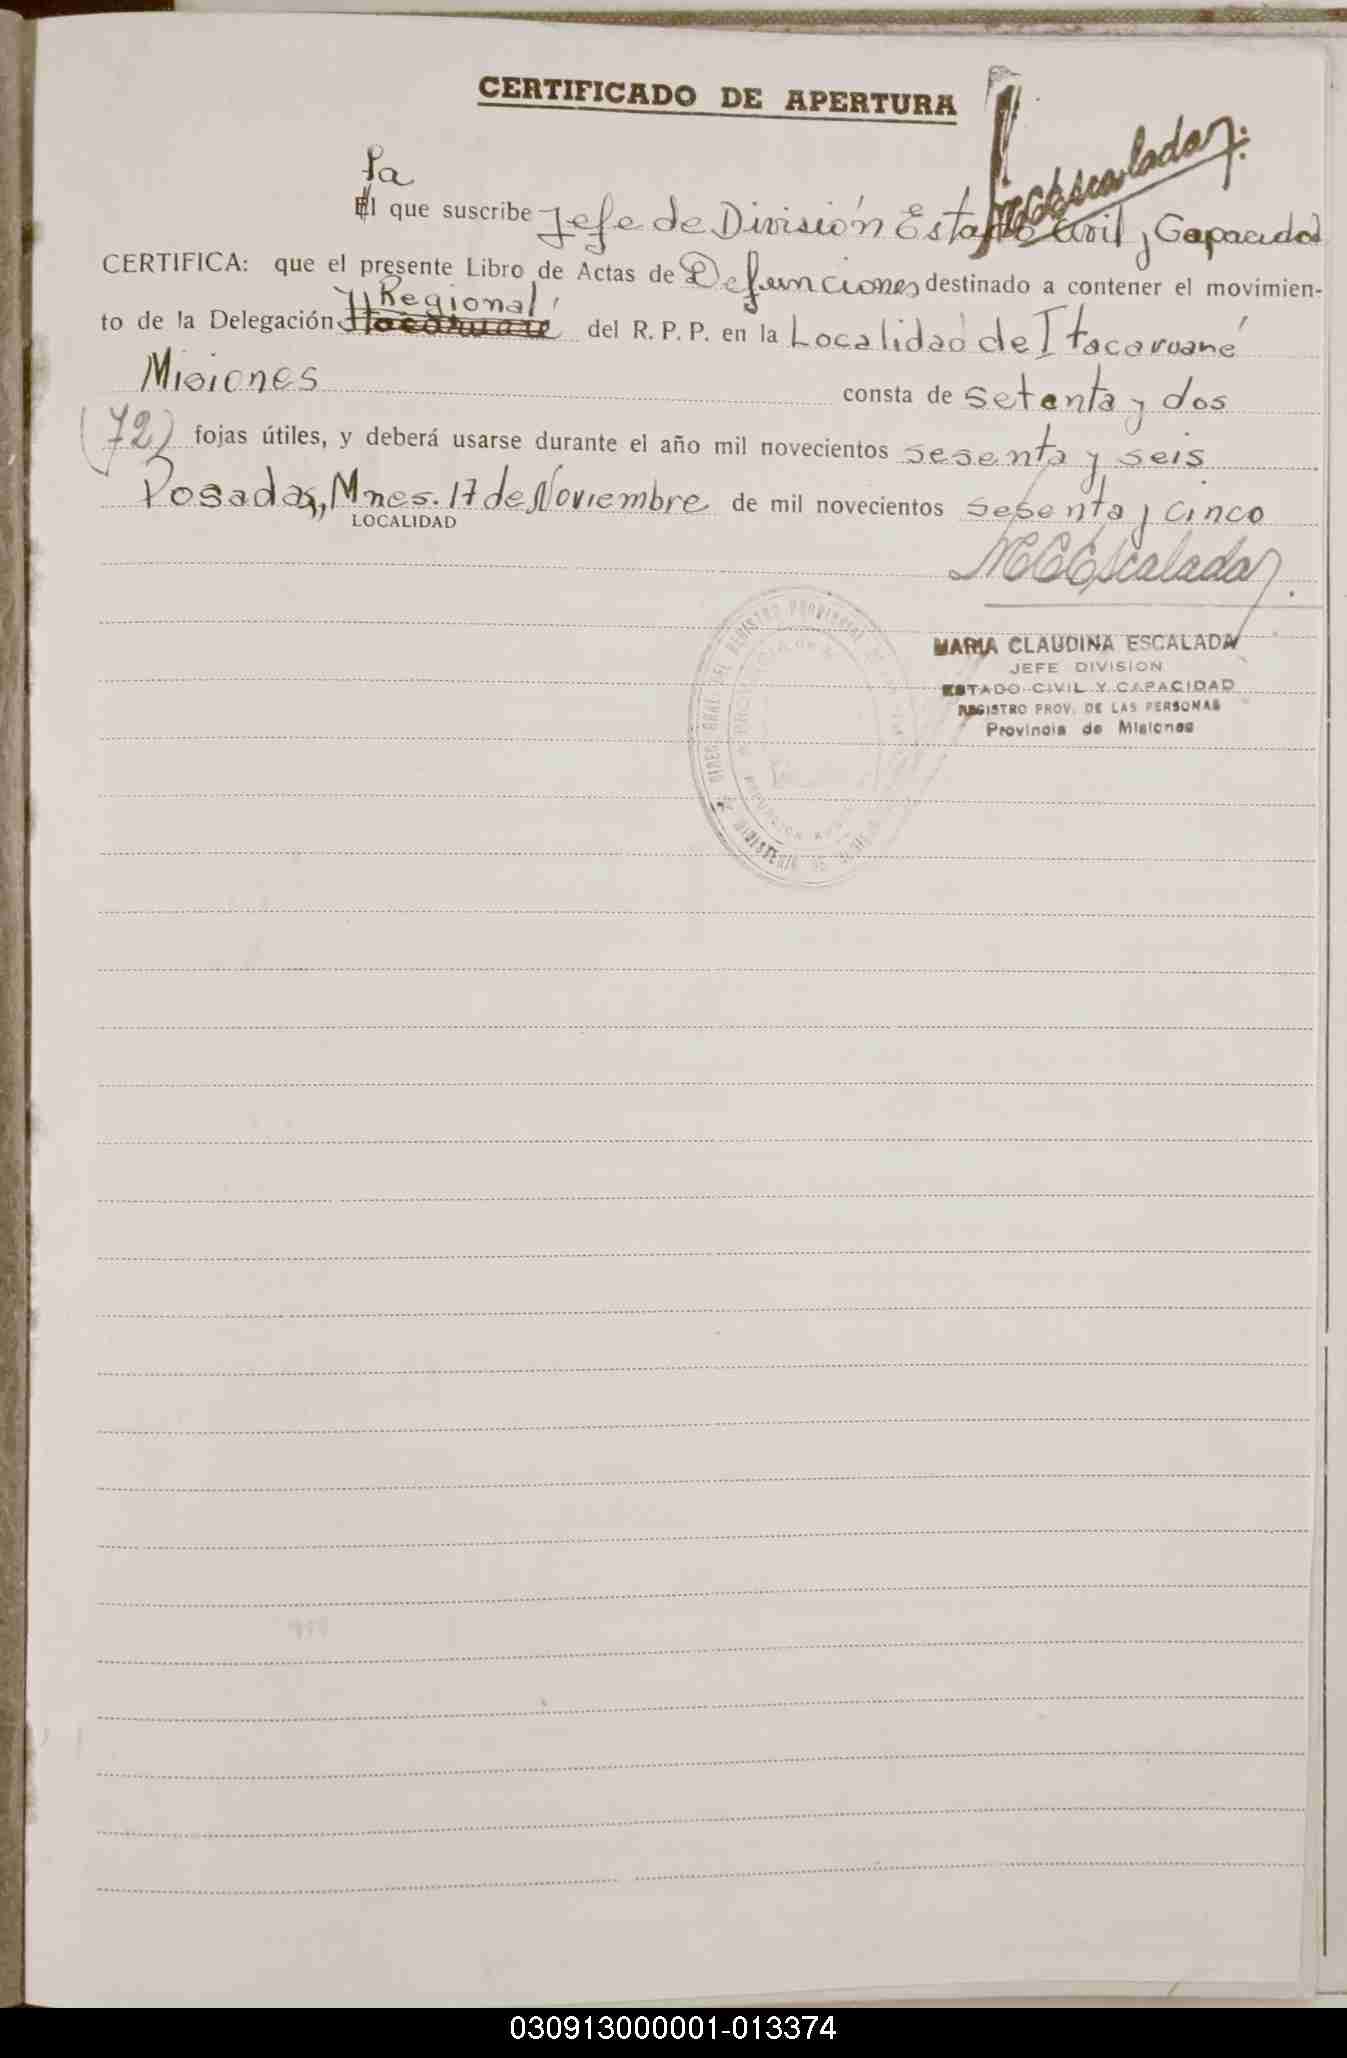 CERTIFICADO DE APERTURA
MCEscalada
La
El que suscribe Jefe de División Estado Civil y Capacidad
CERTIFICA: que el presente Libro de Actas de Defunciones destinado a contener el movimien-
Regional
to de la Delegación Itacaruaré del R. P. P. en la Localidad de Itacaruaré
Misiones consta de setenta y dos
(72) fojas útiles, y deberá usarse durante el año mil novecientos sesenta y seis
Posadas, Mnes. 17 de Noviembre de mil novecientos sesenta y cinco
LOCALIDAD
MCEscalada
MARIA CLAUDINA ESCALADA
JEFE DIVISION
ESTADO CIVIL Y CAPACIDAD
REGISTRO PROV. DE LAS PERSONAS
Provincia de Misiones
REGISTRO PROVINCIAL
030913000001-013374